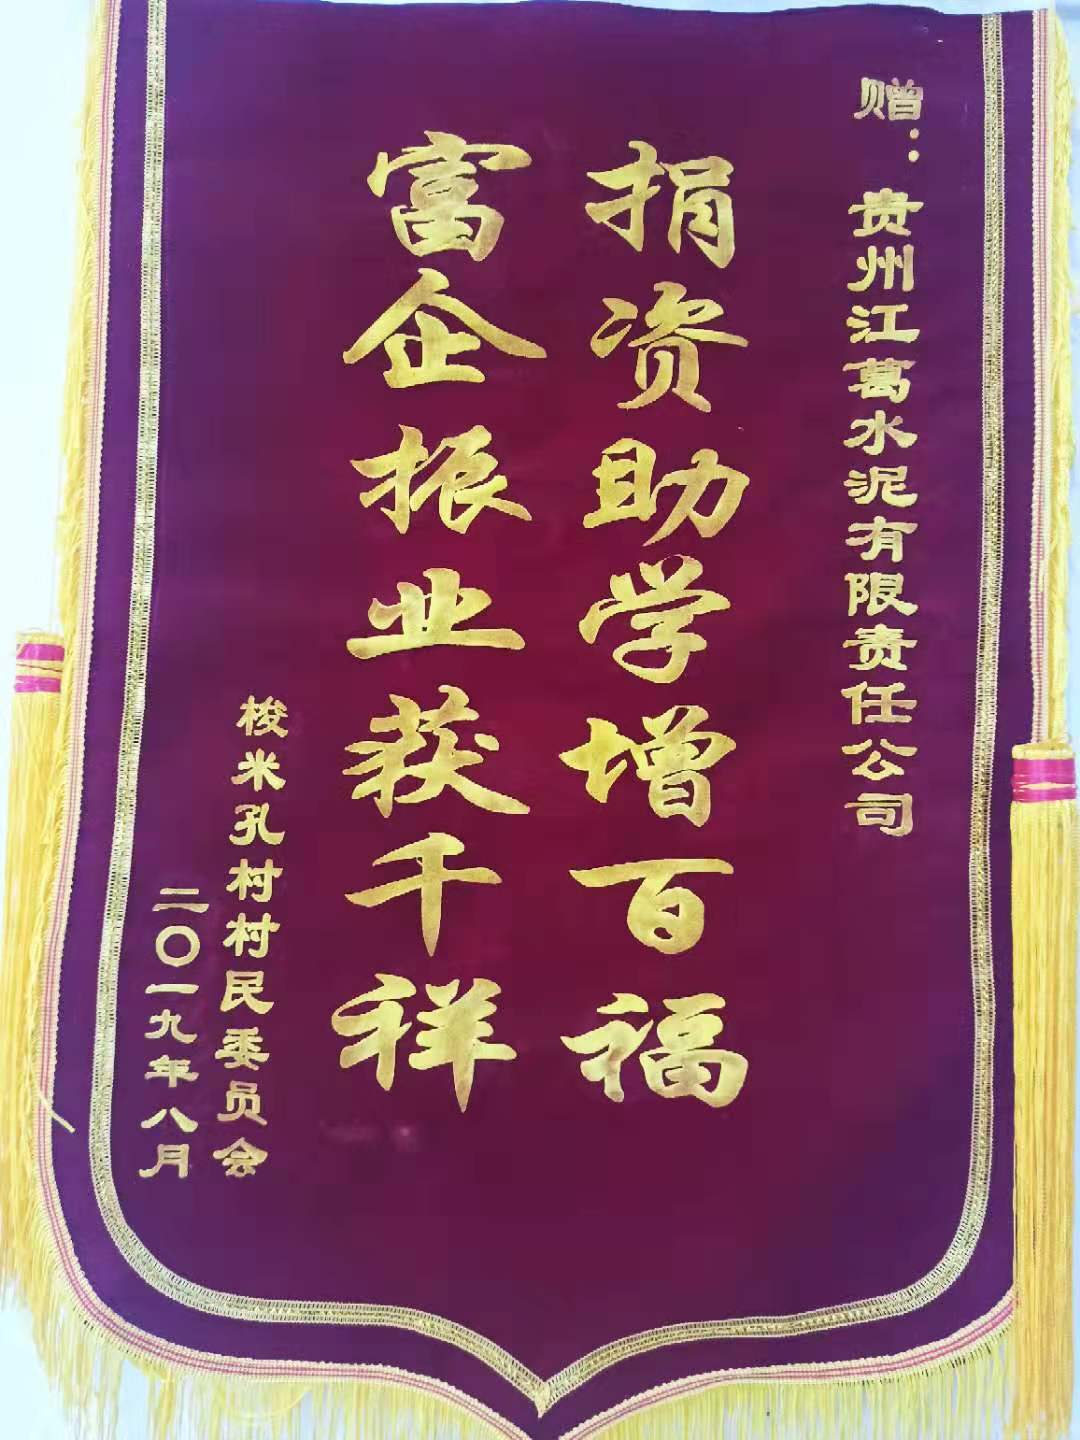 赠：贵州江葛水泥有限责任公司
捐资助学增百福
富企振业获千祥
梭米孔村村民委员会
二〇一九年八月